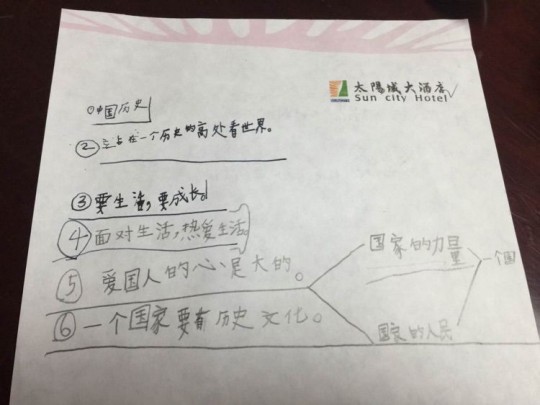 太陽城大酒店
Sun city Hotel
中国历史
② 立占在一个历史的高处看世界。
③ 要生活,要成长
④ 面对生活,热爱生活
⑤ 爱国人的心是大的。
⑥ 一个国家要有历史文化。
国家的力量
一个国
国家的人民